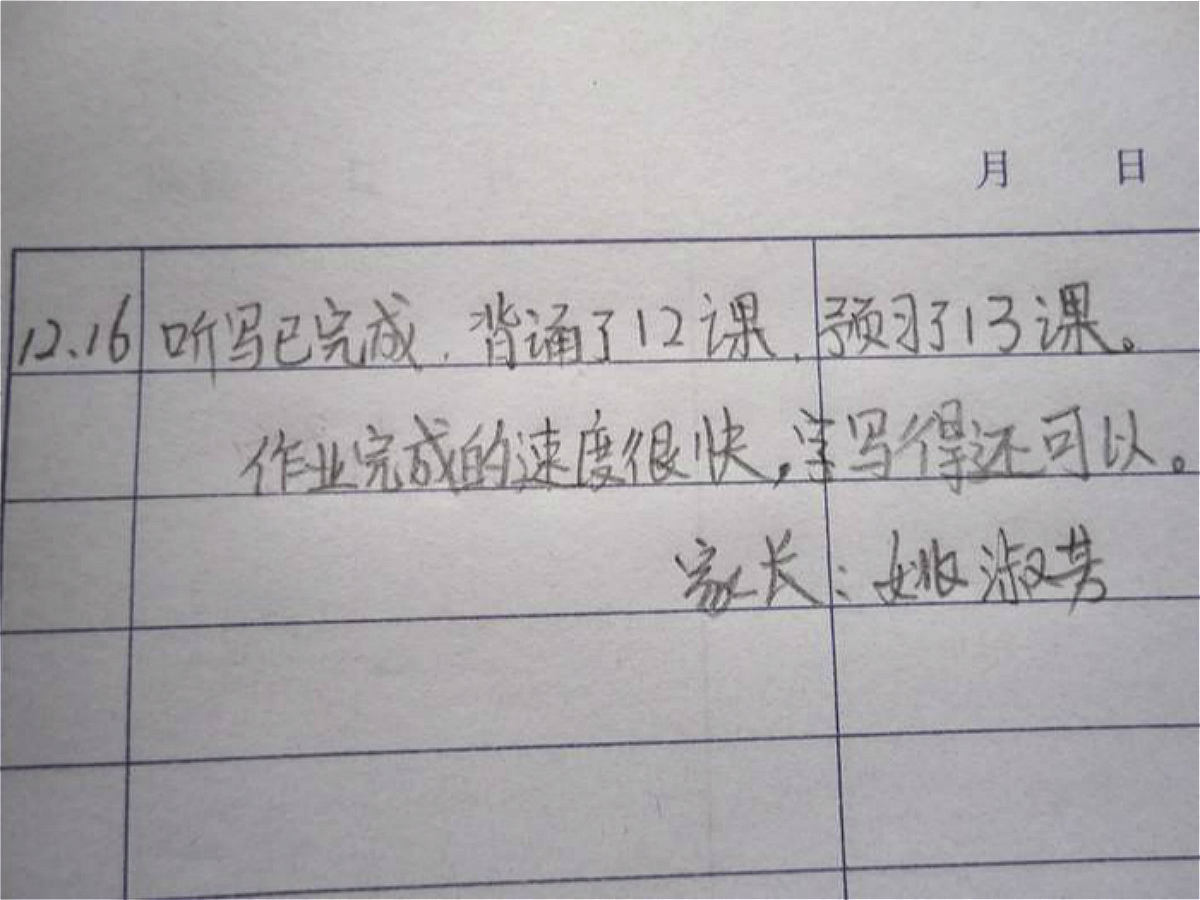 月 日
12.16 听写已完成,背诵了12课,预习了13课。
作业完成的速度很快,字写得还可以。
家长:姚淑芳